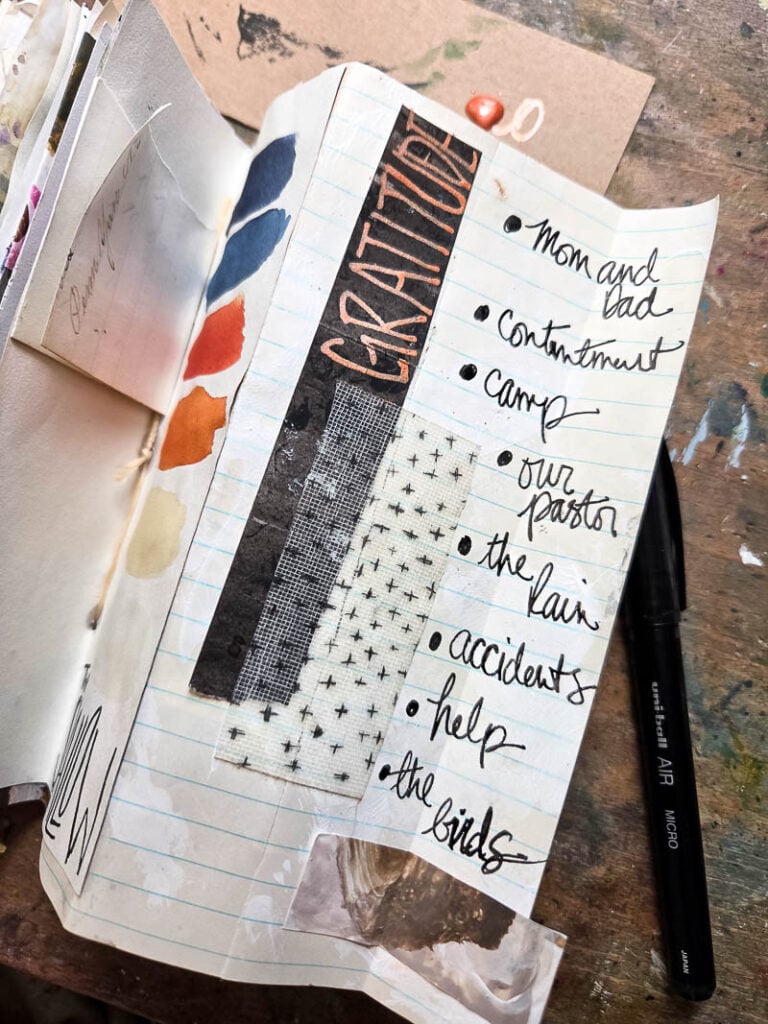 GRATITUDE
• Mom and
Dad
• contentment
• camp
• our
pastor
• the
Rain
• accidents
• help
• the
birds
uni-ball AIR
MICRO
JAPAN